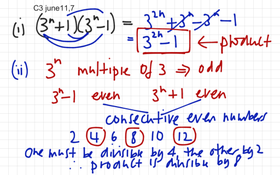 C3 june 11, 7
(i) (3ⁿ+1)(3ⁿ-1) = 3²ⁿ + 3ⁿ - 3ⁿ - 1
= 3²ⁿ - 1 ← product
(ii) 3ⁿ multiple of 3 ⇒ odd
3ⁿ-1 even 3ⁿ+1 even
consecutive even numbers
2 4 6 8 10 12
One must be divisible by 4, the other by 2
∴ product is divisible by 8